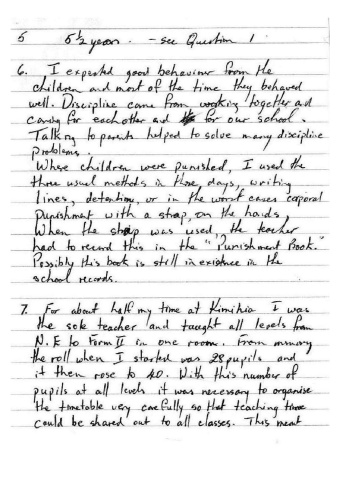 5 5½ years. - see Question 1.
6. I expected good behaviour from the
children and most of the time they behaved
well. Discipline came from working together and
caring for each other and for our school.
Talking to parents helped to solve many discipline
problems.
Where children were punished, I used the
three usual methods in those days, writing
lines, detention, or in the worst cases corporal
punishment with a strap, on the hands,
When the strap was used, the teacher
had to record this in the "Punishment Book."
Possibly this book is still in existence in the
school records.
7. For about half my time at Kimihia I was
the sole teacher and taught all levels from
N.E to Form II in one room. From memory
the roll when I started was 28 pupils and
it then rose to 40. With this number of
pupils at all levels it was necessary to organise
the timetable very carefully so that teaching time
could be shared out to all classes. This meant